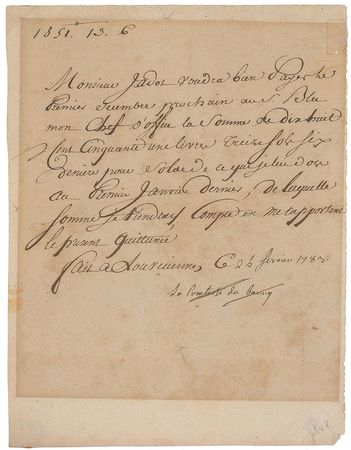 1851.^tt 13. 6
Monsieur Jadot voudra bien Payer le
Premier Decembre prochain au S Bleu
mon Chef d'office la Somme de dix huit
Cent Cinquante une livre Treize sols six
deniers pour Solde de ce que je lui dois
au Premier Janvier dernier, de laquelle
Somme je tiendrais Compte en me rapportant
le present quittancé
fait a Louveciennes Ce 24 fevrier 1783
La Comtesse du Barry